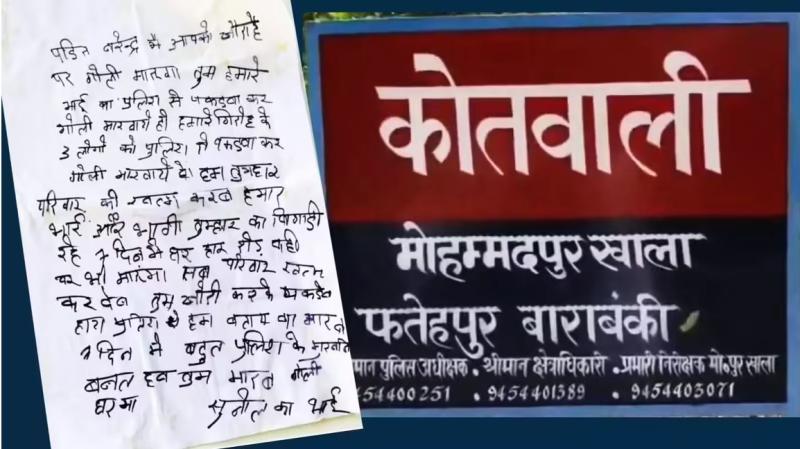 पंडित नरेन्द्र मै आपको चौराहे
पर गोली मारूगा तुम हमारे
भाई का पुलिस से पकड़वा कर
गोली मारवाये हो हमारे गिरोह के
3 लोगो को पुलिस से पकड़वा कर
गोली मारवाये हो हम तुम्हार
परिवार को खत्म करब हमार
भाई और भाभी तुम्हार का बिगाड़ी
रहे 7 दिन मे घर द्वार छोड़ वही
पर भी मारूगा सब परिवार खत्म
कर देब तुम
पुलिस से हम बताय का मार दो
7 दिन मे बहुत पुलिस के
बनत हव तुम मारब गोली
घर मा सुनील का भाई
कोतवाली
मोहम्मदपुर खाला
फतेहपुर बाराबंकी
मान पुलिस अधीक्षक · श्रीमान क्षेत्राधिकारी · प्रभारी निरीक्षक मो०पुर खाला
9454400251 · 9454401389 · 9454403071